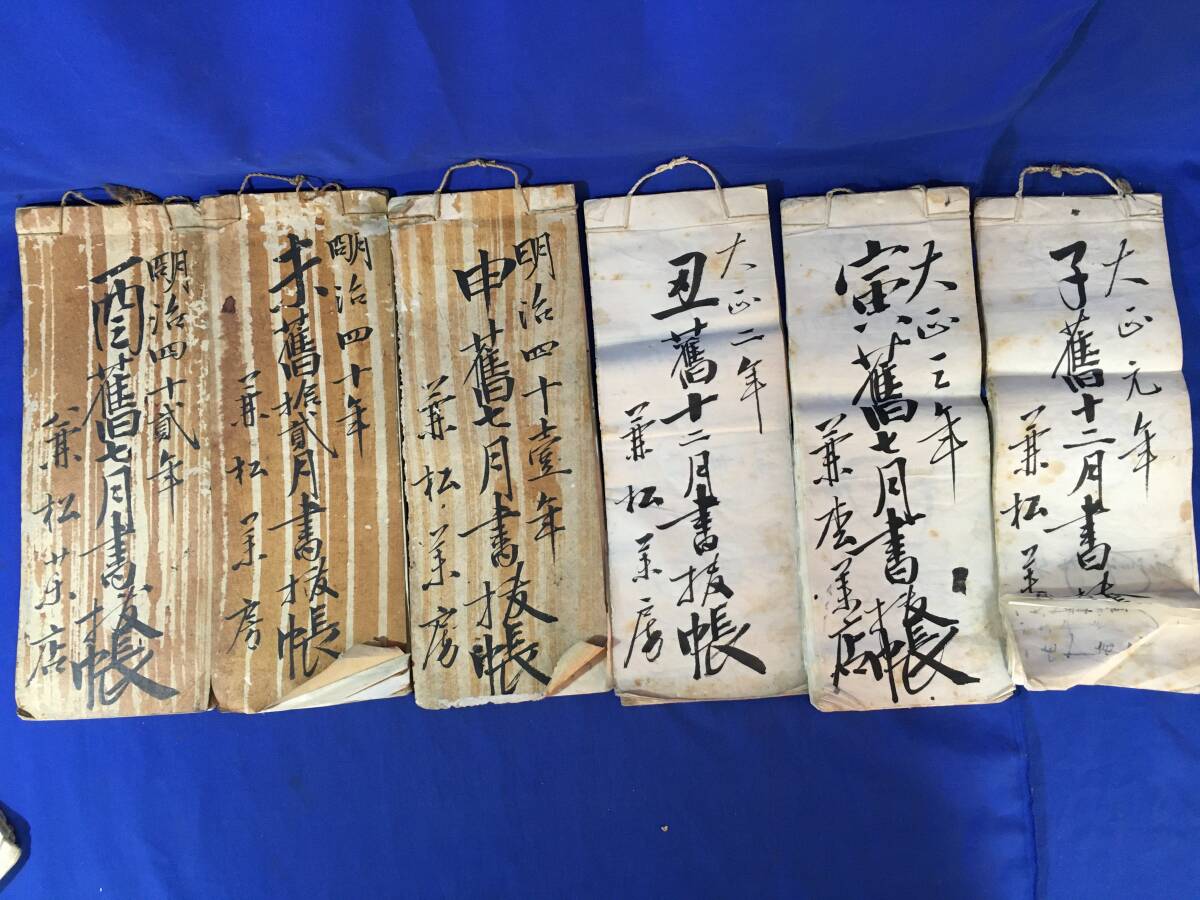 明治四十貳年
酉舊七月書拔帳
兼松茶店
明治四十年
未舊拾貳月書拔帳
兼松茶房
明治四十壹年
申舊七月書拔帳
兼松茶房
大正二年
丑舊十二月書拔帳
兼松茶房
大正三年
寅舊七月書拔帳
兼松茶店
大正元年
子舊十二月書
兼松茶